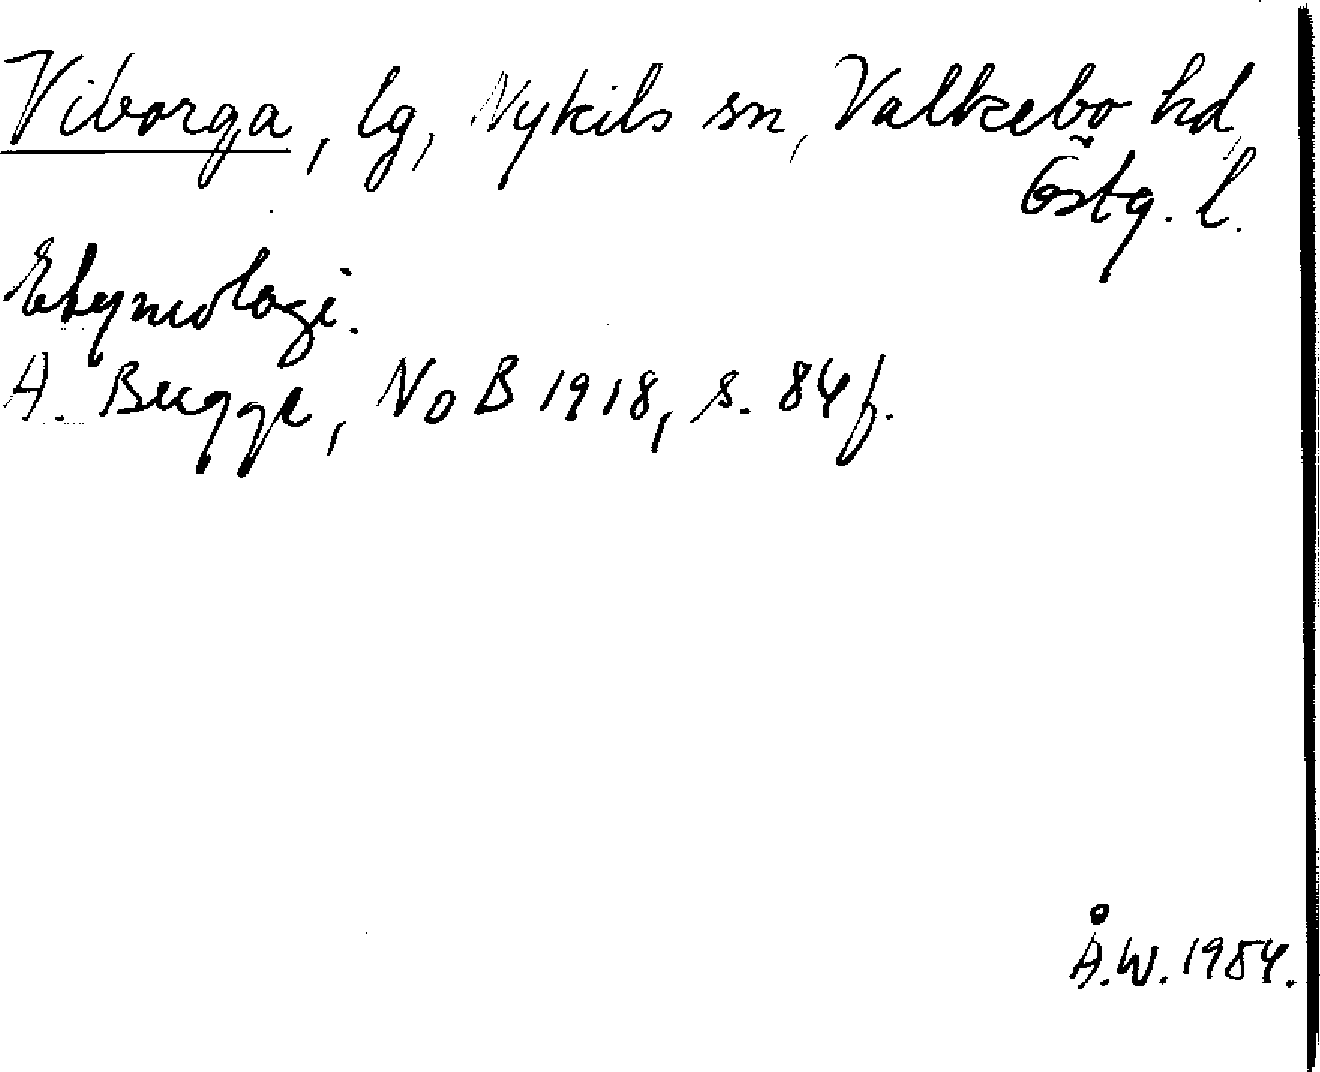 Viborga, lg, Nykils sn, Valkebo hd,
Östg. l.
Etymologi.
A. Bugge, NoB 1918, s. 84 f.
Å.W. 1954.